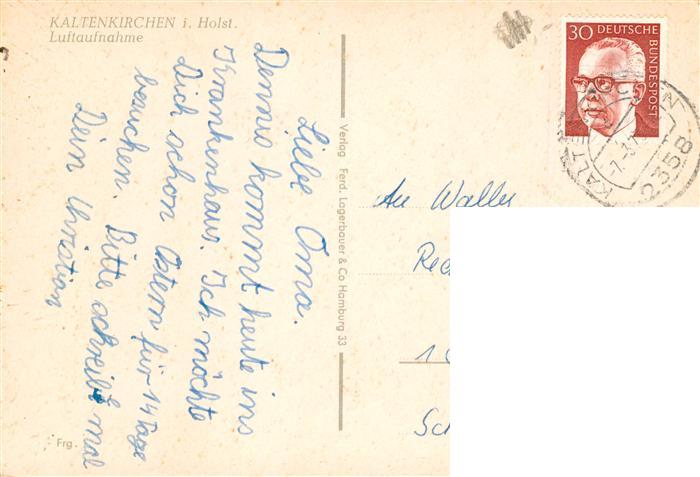 KALTENKIRCHEN i. Holst.
Luftaufnahme
Liebe Oma.
Dennis kommt heute ins
Krankenhaus. Ich möchte
Dich schon Ostern für 14 Tage
besuchen. Bitte schreibe mal
Dein Christian
Verlag Ferd. Lagerbauer & Co Hamburg 33
Frg.
30 DEUTSCHE BUNDESPOST
2358
An Walter
Rec
1
Sc